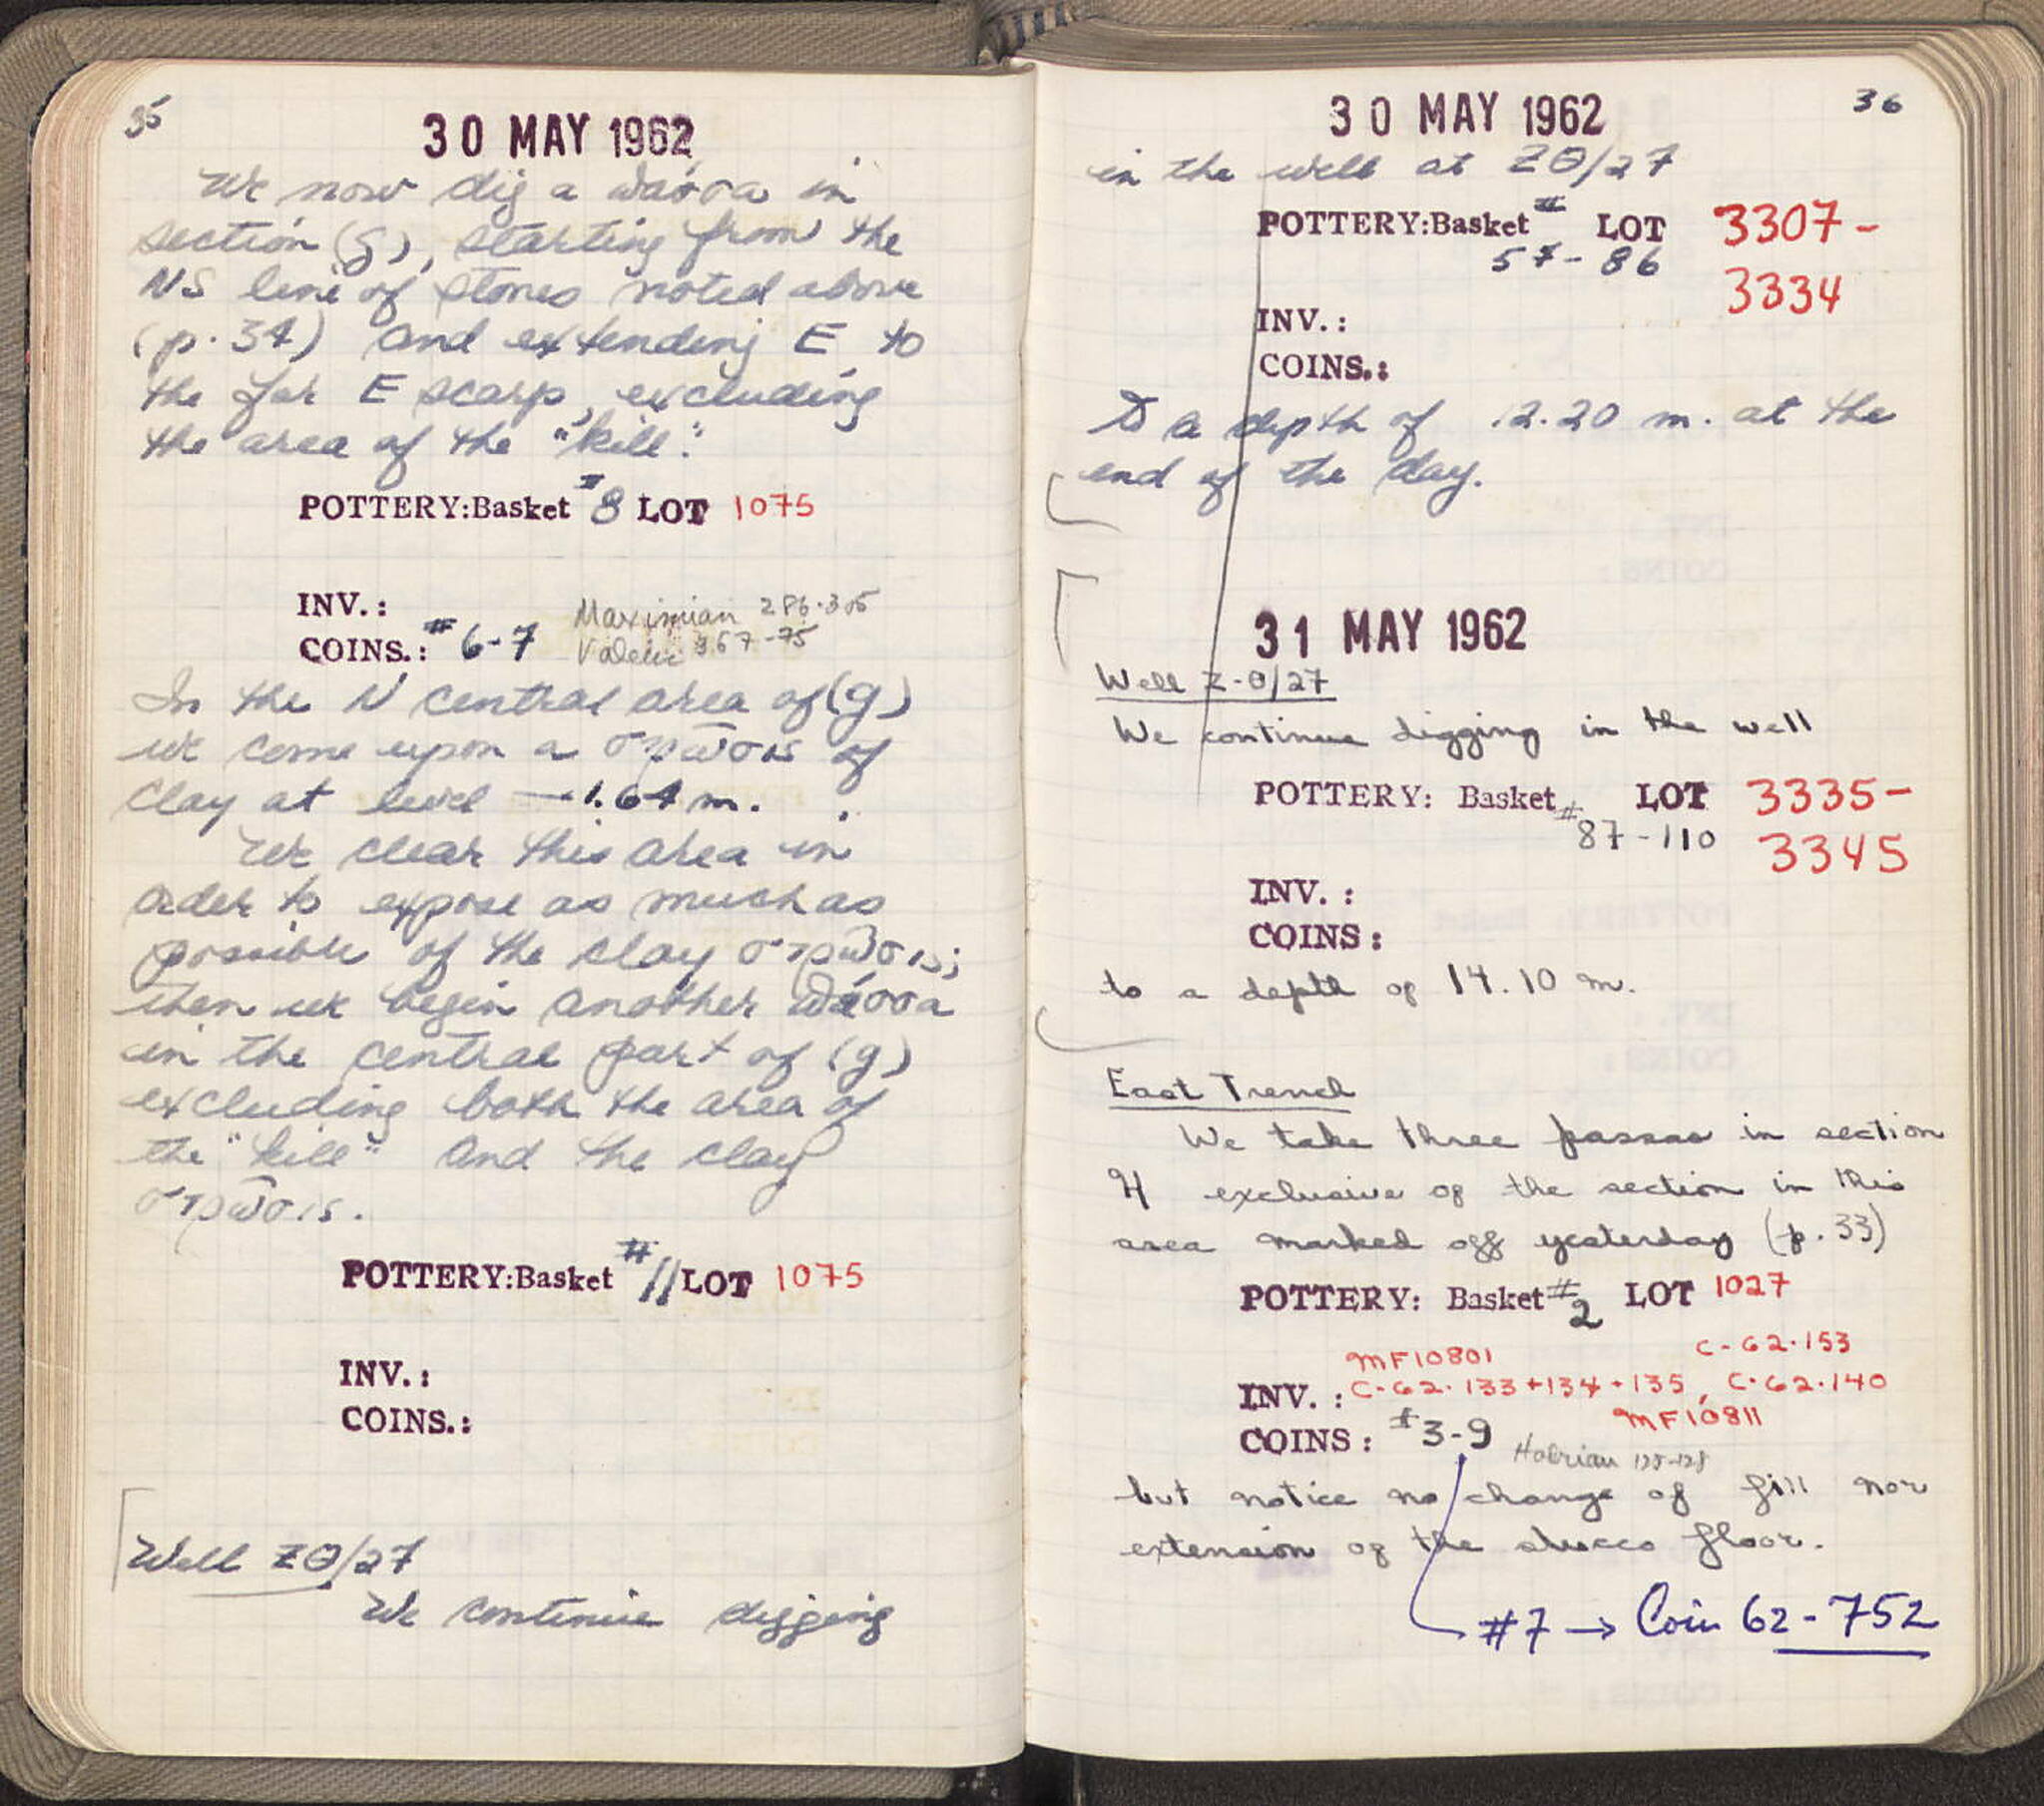 35
30 MAY 1962
We now dig a πάσσα in
section (g), starting from the
NS line of stones noted above
(p. 34) and extending E to
the far E scarp, excluding
the area of the "kill".
POTTERY:Basket #8 LOT 1075
INV.:
COINS.: #6-7 Maximian 286-305
Valens 367-75
In the N central area of (g)
we come upon a στρῶσις of
clay at level -1.64 m.
We clear this area in
order to expose as much as
possible of the clay στρῶσις;
then we begin another πάσσα
in the central part of (g)
excluding both the area of
the "kill" and the clay
στρῶσις.
POTTERY:Basket #11 LOT 1075
INV.:
COINS.:
Well ZΘ/27
We continue digging
36
30 MAY 1962
in the well at ZΘ/27
POTTERY:Basket # LOT 3307-
57-86 3334
INV.:
COINS.:
To a depth of 12.20 m. at the
end of the day.
31 MAY 1962
Well Z-Θ/27
We continue digging in the well
POTTERY: Basket # LOT 3335-
87-110 3345
INV. :
COINS :
to a depth of 14.10 m.
East Trench
We take three passas in section
exclusive of the section in this
area marked off yesterday (p. 33)
POTTERY: Basket #2 LOT 1027
MF10801 C-62-153
INV. : C-62-133+134+135, C-62-140
MF10811
COINS : #3-9 Hadrian 125-128
but notice no change of fill nor
extension of the stucco floor.
#7 → Coin 62-752